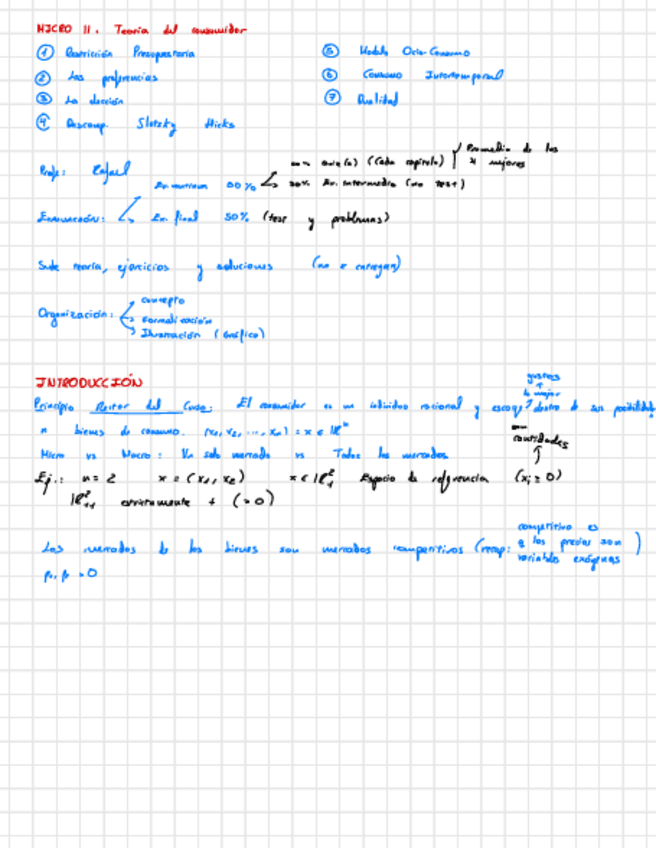 MICRO II. Teoría del consumidor
① Restricción Presupuestaria
② Las preferencias
③ La elección
④ Descomp. Slutsky Hicks
⑤ Modelo Ocio-Consumo
⑥ Consumo Intertemporal
⑦ Dualidad
Profe: Rafael
(Cada capítulo) Promedio de los 4 mejores
50% Ex. intermedio (no test)
Ex. final 50% (test y problemas)
Sube teoría, ejercicios y soluciones (no se entregan)
Organización: concepto
Formalización
Ilustración (Gráfico)
INTRODUCCIÓN
gustos
+
lo mejor
Principio Rector del Curso: El consumidor es un individuo racional y escoge dentro de sus posibilidades
n bienes de consumo. (x₁, x₂, ..., xₙ) = x ∈ ℝⁿ
cantidades
Micro vs Macro: Un solo mercado vs Todos los mercados
Ej.: n = 2 x = (x₁, x₂) x ∈ ℝ²₊ Espacio de referencia (xᵢ ≥ 0)
ℝ²₊₊ estrictamente + (>0)
Los mercados de los bienes son mercados competitivos (recap: competitivo es q los precios son variables exógenas)